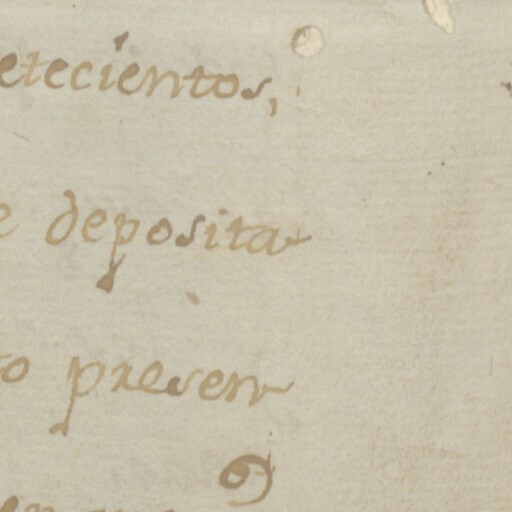 etecientos,
e deposita
to presen